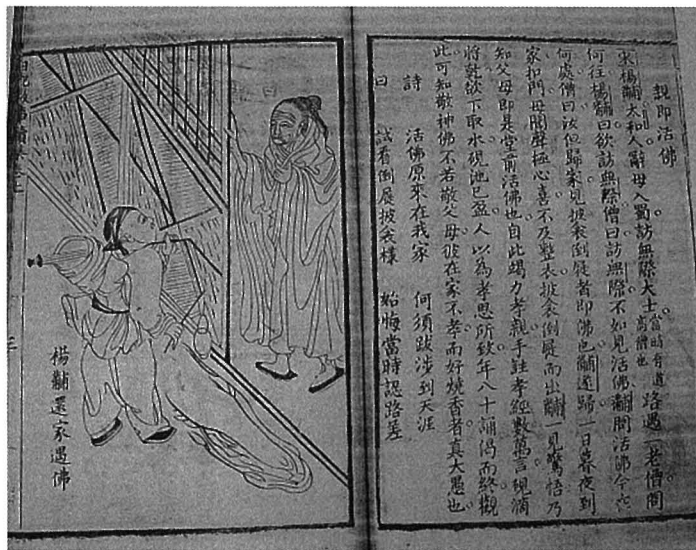 親即活佛
宋楊黼太和人辭母入蜀訪無際大士當時有道高僧也路遇一老僧問
何往楊黼曰欲訪無際僧曰訪無際不如見活佛黼問活佛今在
何處僧曰汝但歸家見披衾倒屣者即佛也黼遂歸一日暮夜到
家扣門母聞聲極心喜不及整衣披衾倒屣而出黼一見驚悟乃
知父母即是堂前活佛也自此竭力孝親手註孝經數萬言硯滴
將乾欲下取水硯池已盈人以為孝思所致年八十誦偈而終觀
此可知敬神佛不若敬父母彼在家不孝而好燒香者真大愚也
詩 活佛原來在我家 何須跋涉到天涯
曰 試看倒屣披衾樣 始悔當時認路差
楊黼還家遇佛